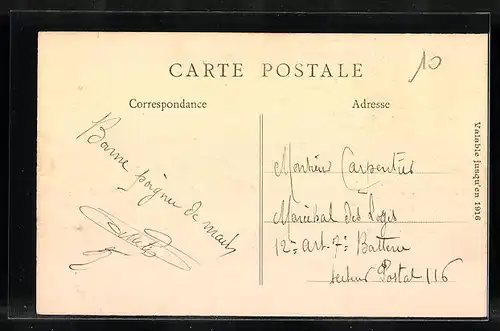 10
CARTE POSTALE
Correspondance
Adresse
Bonne poignée de main
Monsieur Carpentier
Maréchal des Logis
12e art. 7e Batterie
secteur Postal 116
Valable jusqu'en 1916